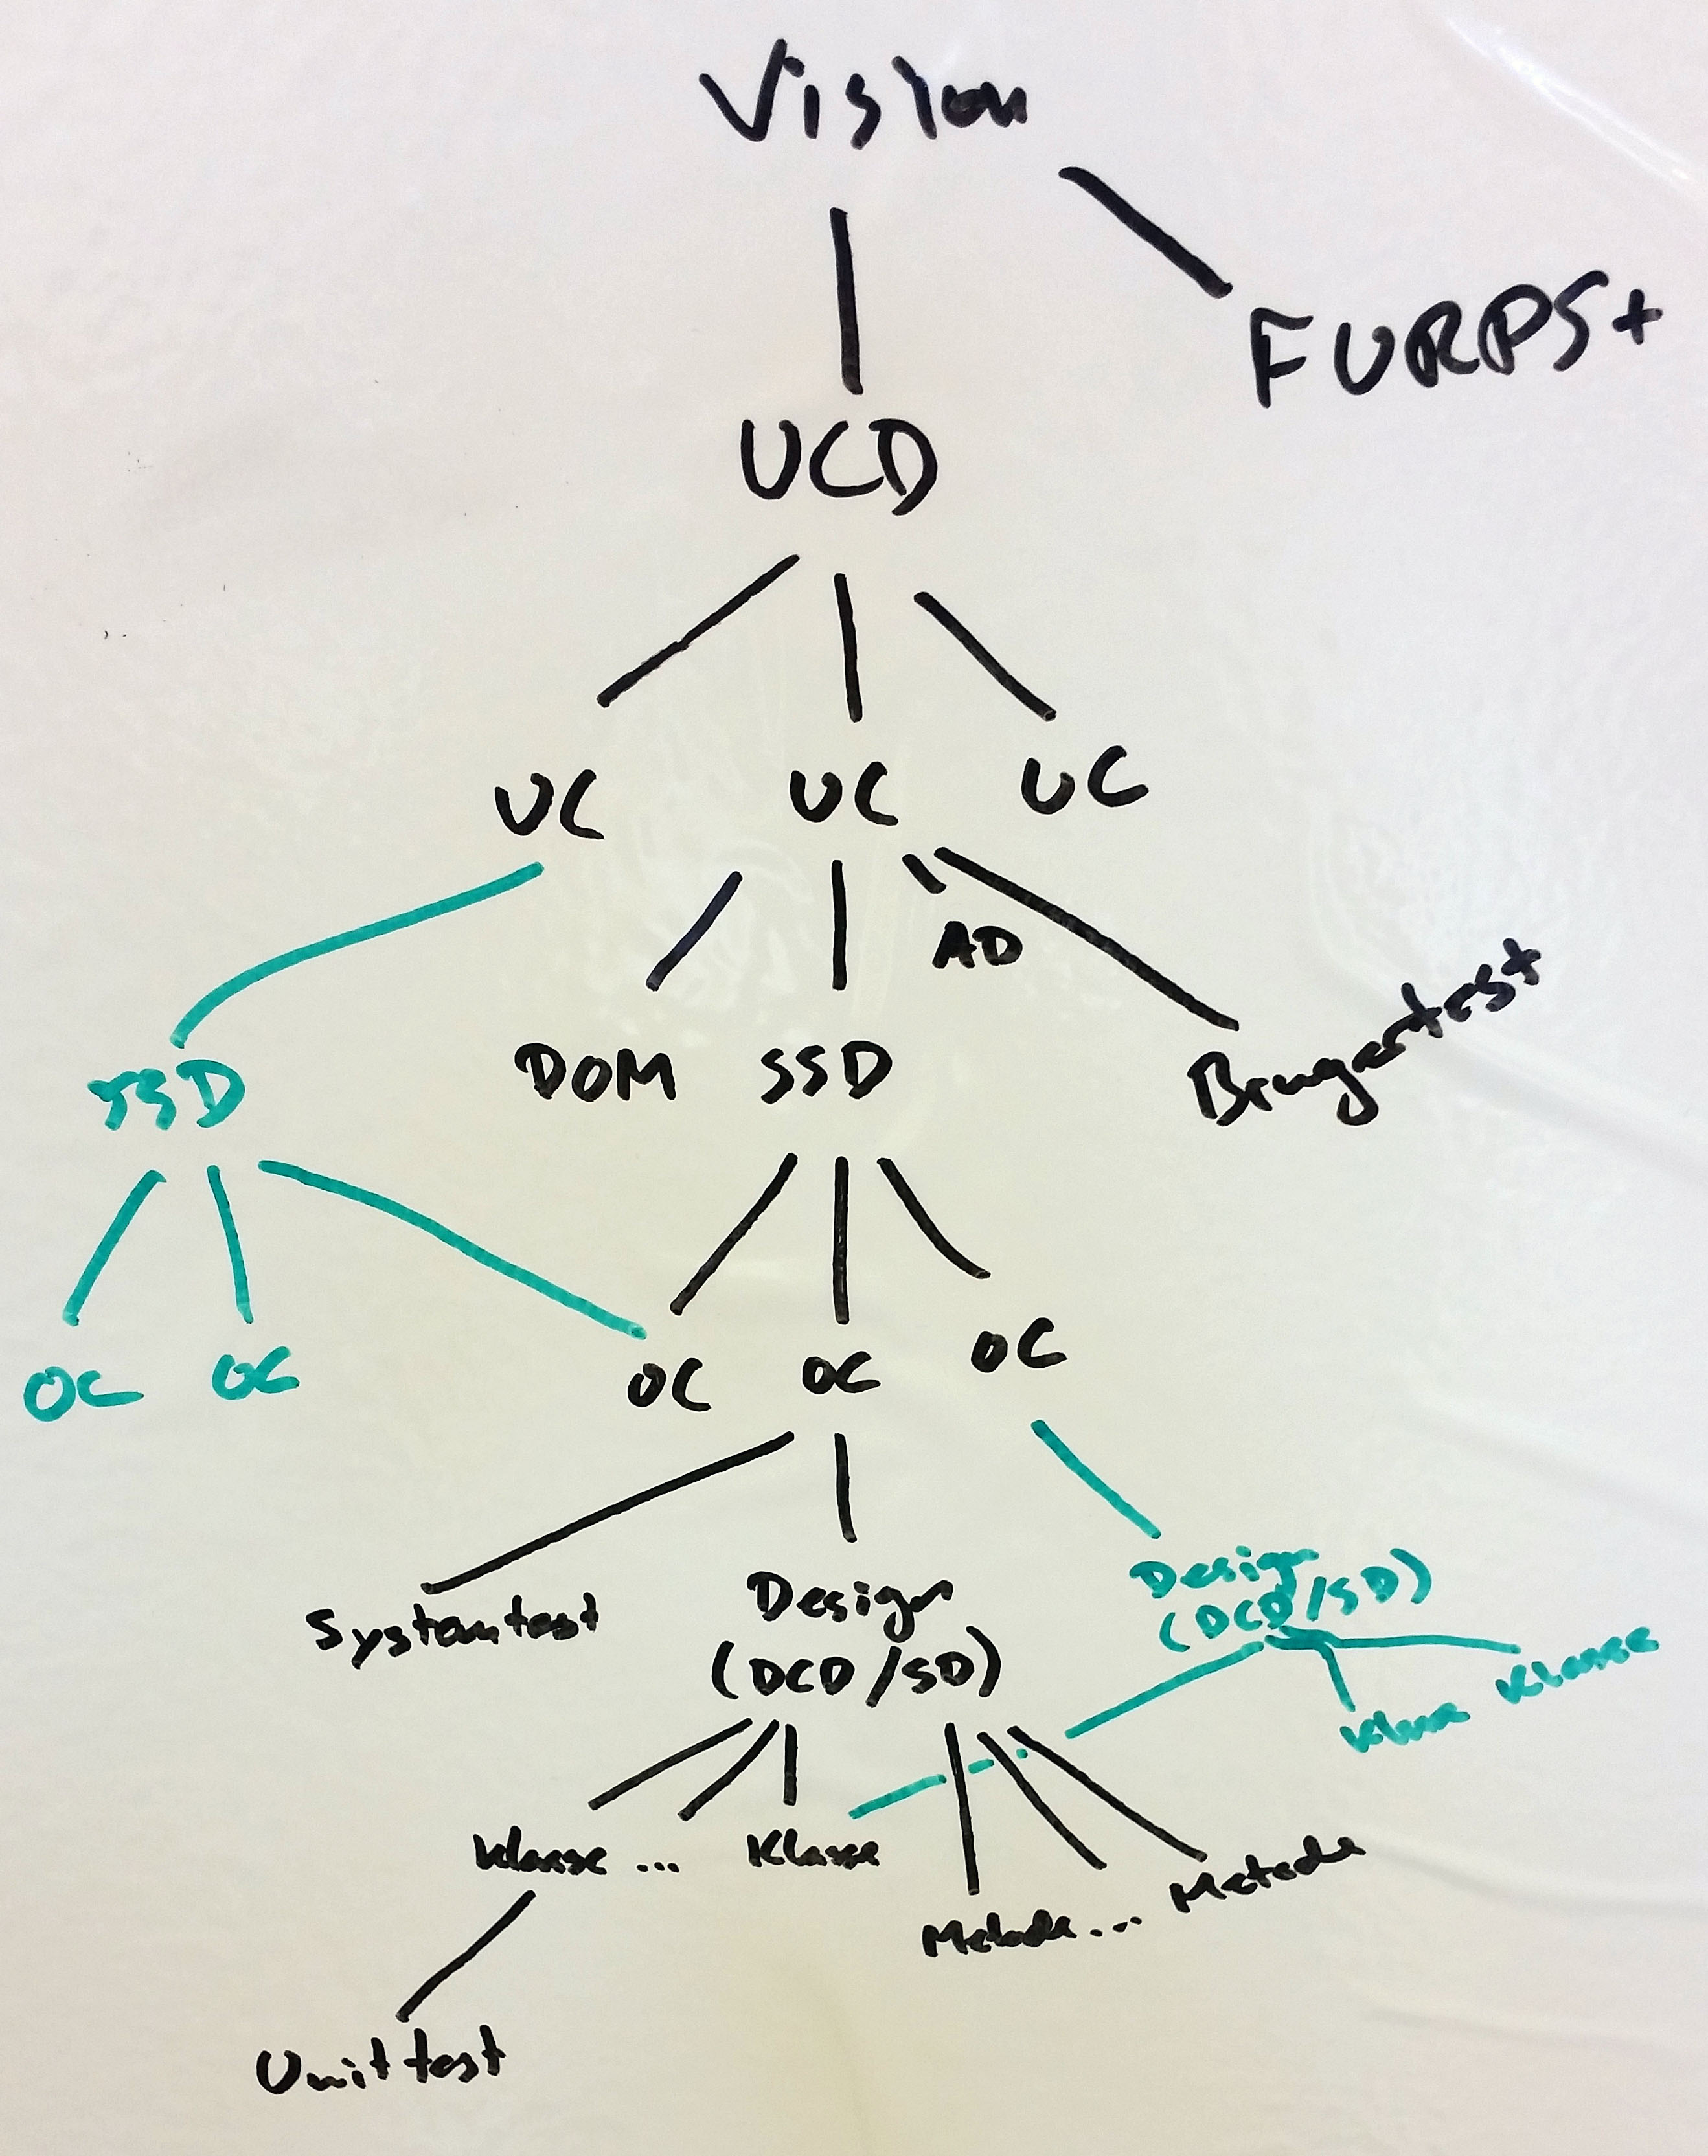 Vision
FURPS+
UCD
UC UC UC
AD
SSD DOM SSD Brugertest
OC OC OC OC OC
Systemtest Design Design
(DCD/SD) (DCD/SD)
Klasse Klasse
Klasse ... Klasse
Metode ... Metode
Unittest